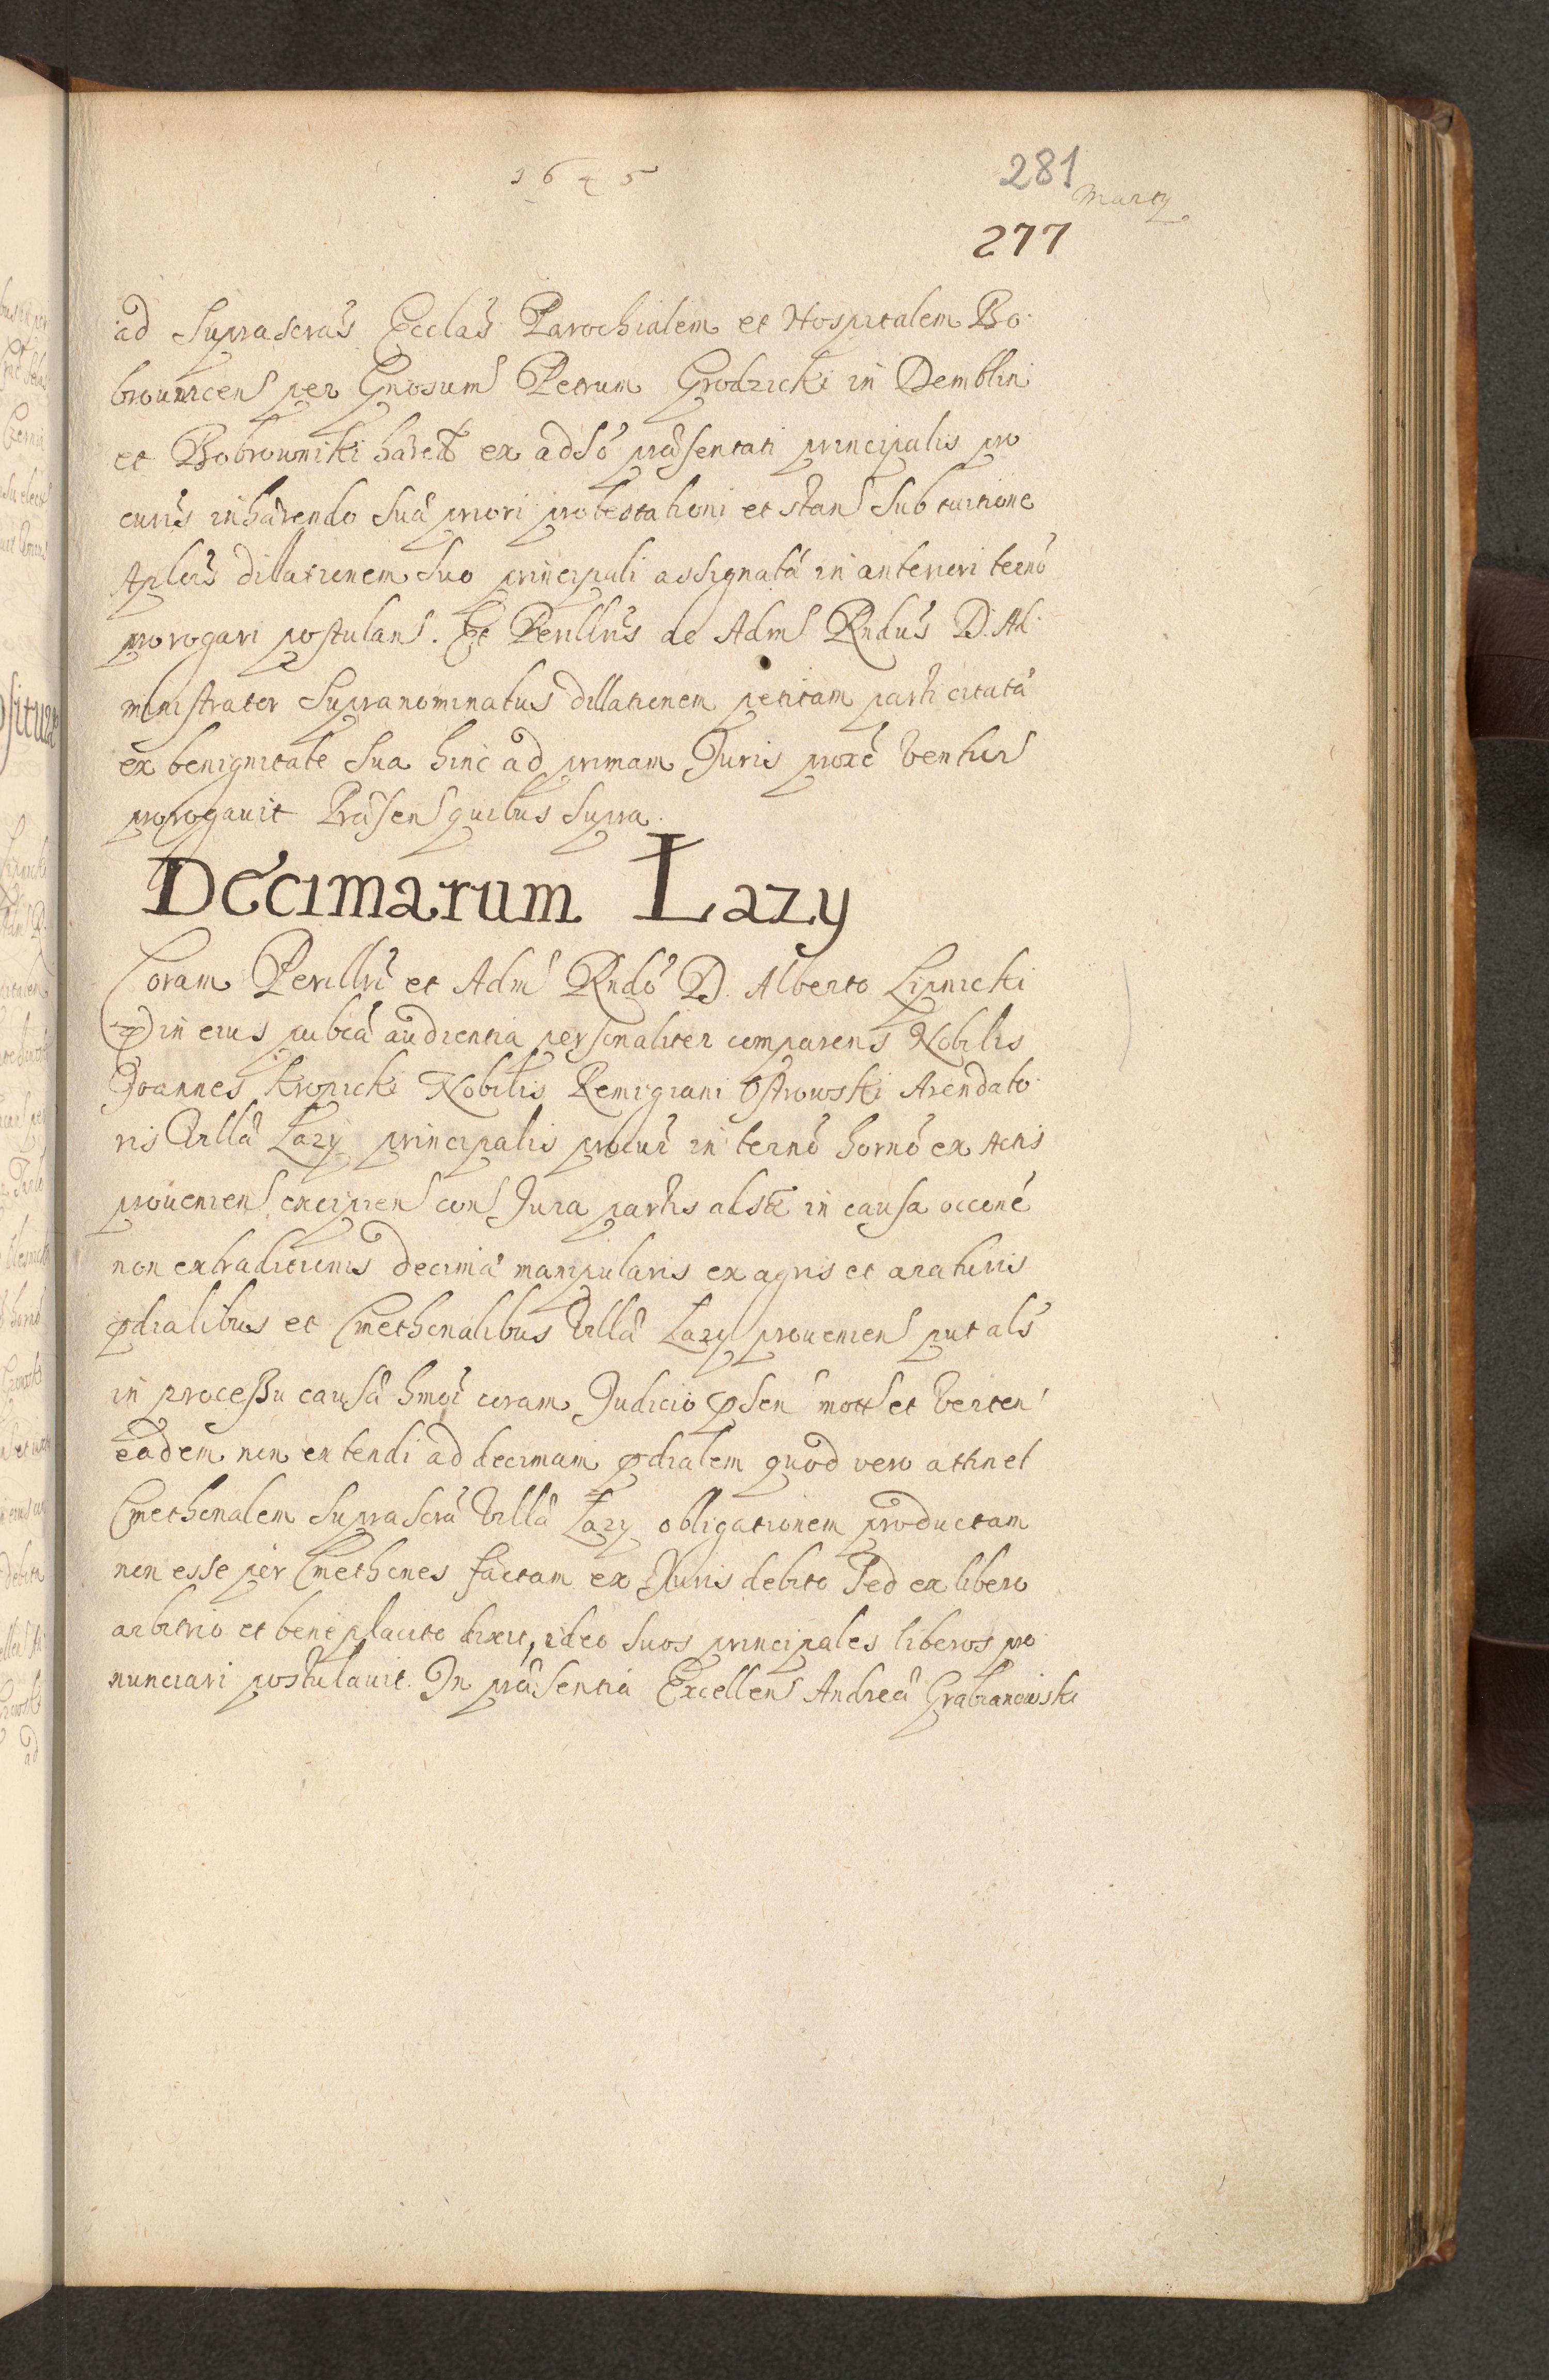 1645
281
Marty
277
ad suprascras Ecclas Parochialem et Hospitalem Bo
brounicen per Gnosum Petrum Grodzicki in Demblin
et Bobrowniki hared ex adso præsentati principalis pro
curis inhærendo suæ priori protestationi et stan sub tuitione
Aplcis dillationem suo principali assignatá in anteriori termo
prorogari postulans. Et Perillris ac Adm Rndus D. Ad
ministrator supranominatus dillationem petitam parti citatæ
ex benignitate sua hinc ad primam Juris proxe venturs
prorogavit Præsen quibus supra.
Decimarum Łazy
Coram Perillri et Adm Rndo D. Alberto Lipnicki
in eius publca audientia personaliter comparens Nobilis
Joannes Kropicki Nobilis Remigiani Ostrowski Arendato
ris villæ Łazy principalis procur in termo horno ex Actis
provenien excipien con Jura partis in causa occone
non extraditionis decimæ manipularis ex agris et araturis
pdialibus et Cmethonalibus villæ Łazy provenien put als
in processu causæ hmoi coram Judicio psen mott et verten
eadem non extendi ad decimam pdialem quod vero attinet
Cmethonalem suprascræ villæ Łazy obligationem productam
non esse per Cmethones factam ex Juris debito sed ex libero
arbitrio et beneplacito dixit, ideo suos principales liberos pro
nunciari postulavit. In præsentia Excellen Andreæ Grabianowski